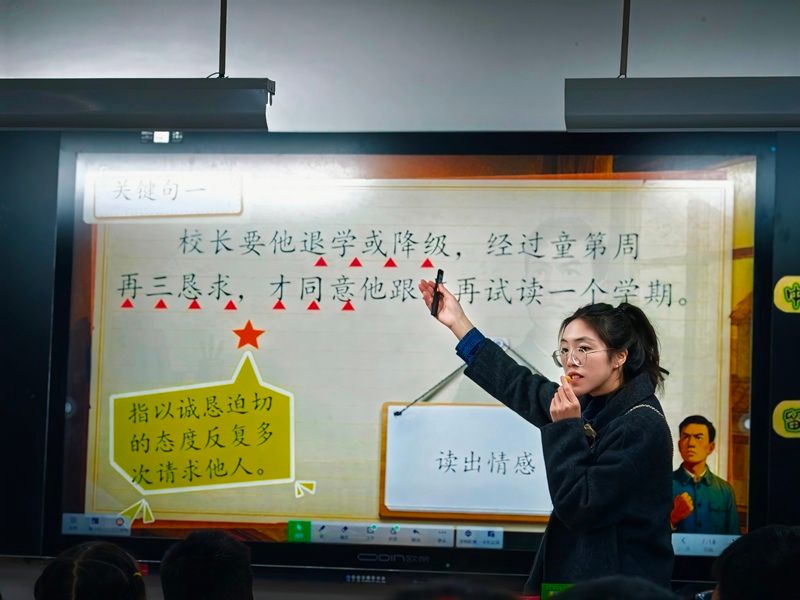 关键句一
校长要他退学或降级，经过童第周
再三恳求，才同意他跟 再试读一个学期。
指以诚恳迫切
的态度反复多
次请求他人。
读出情感
ODIN欧帝
7/18
留